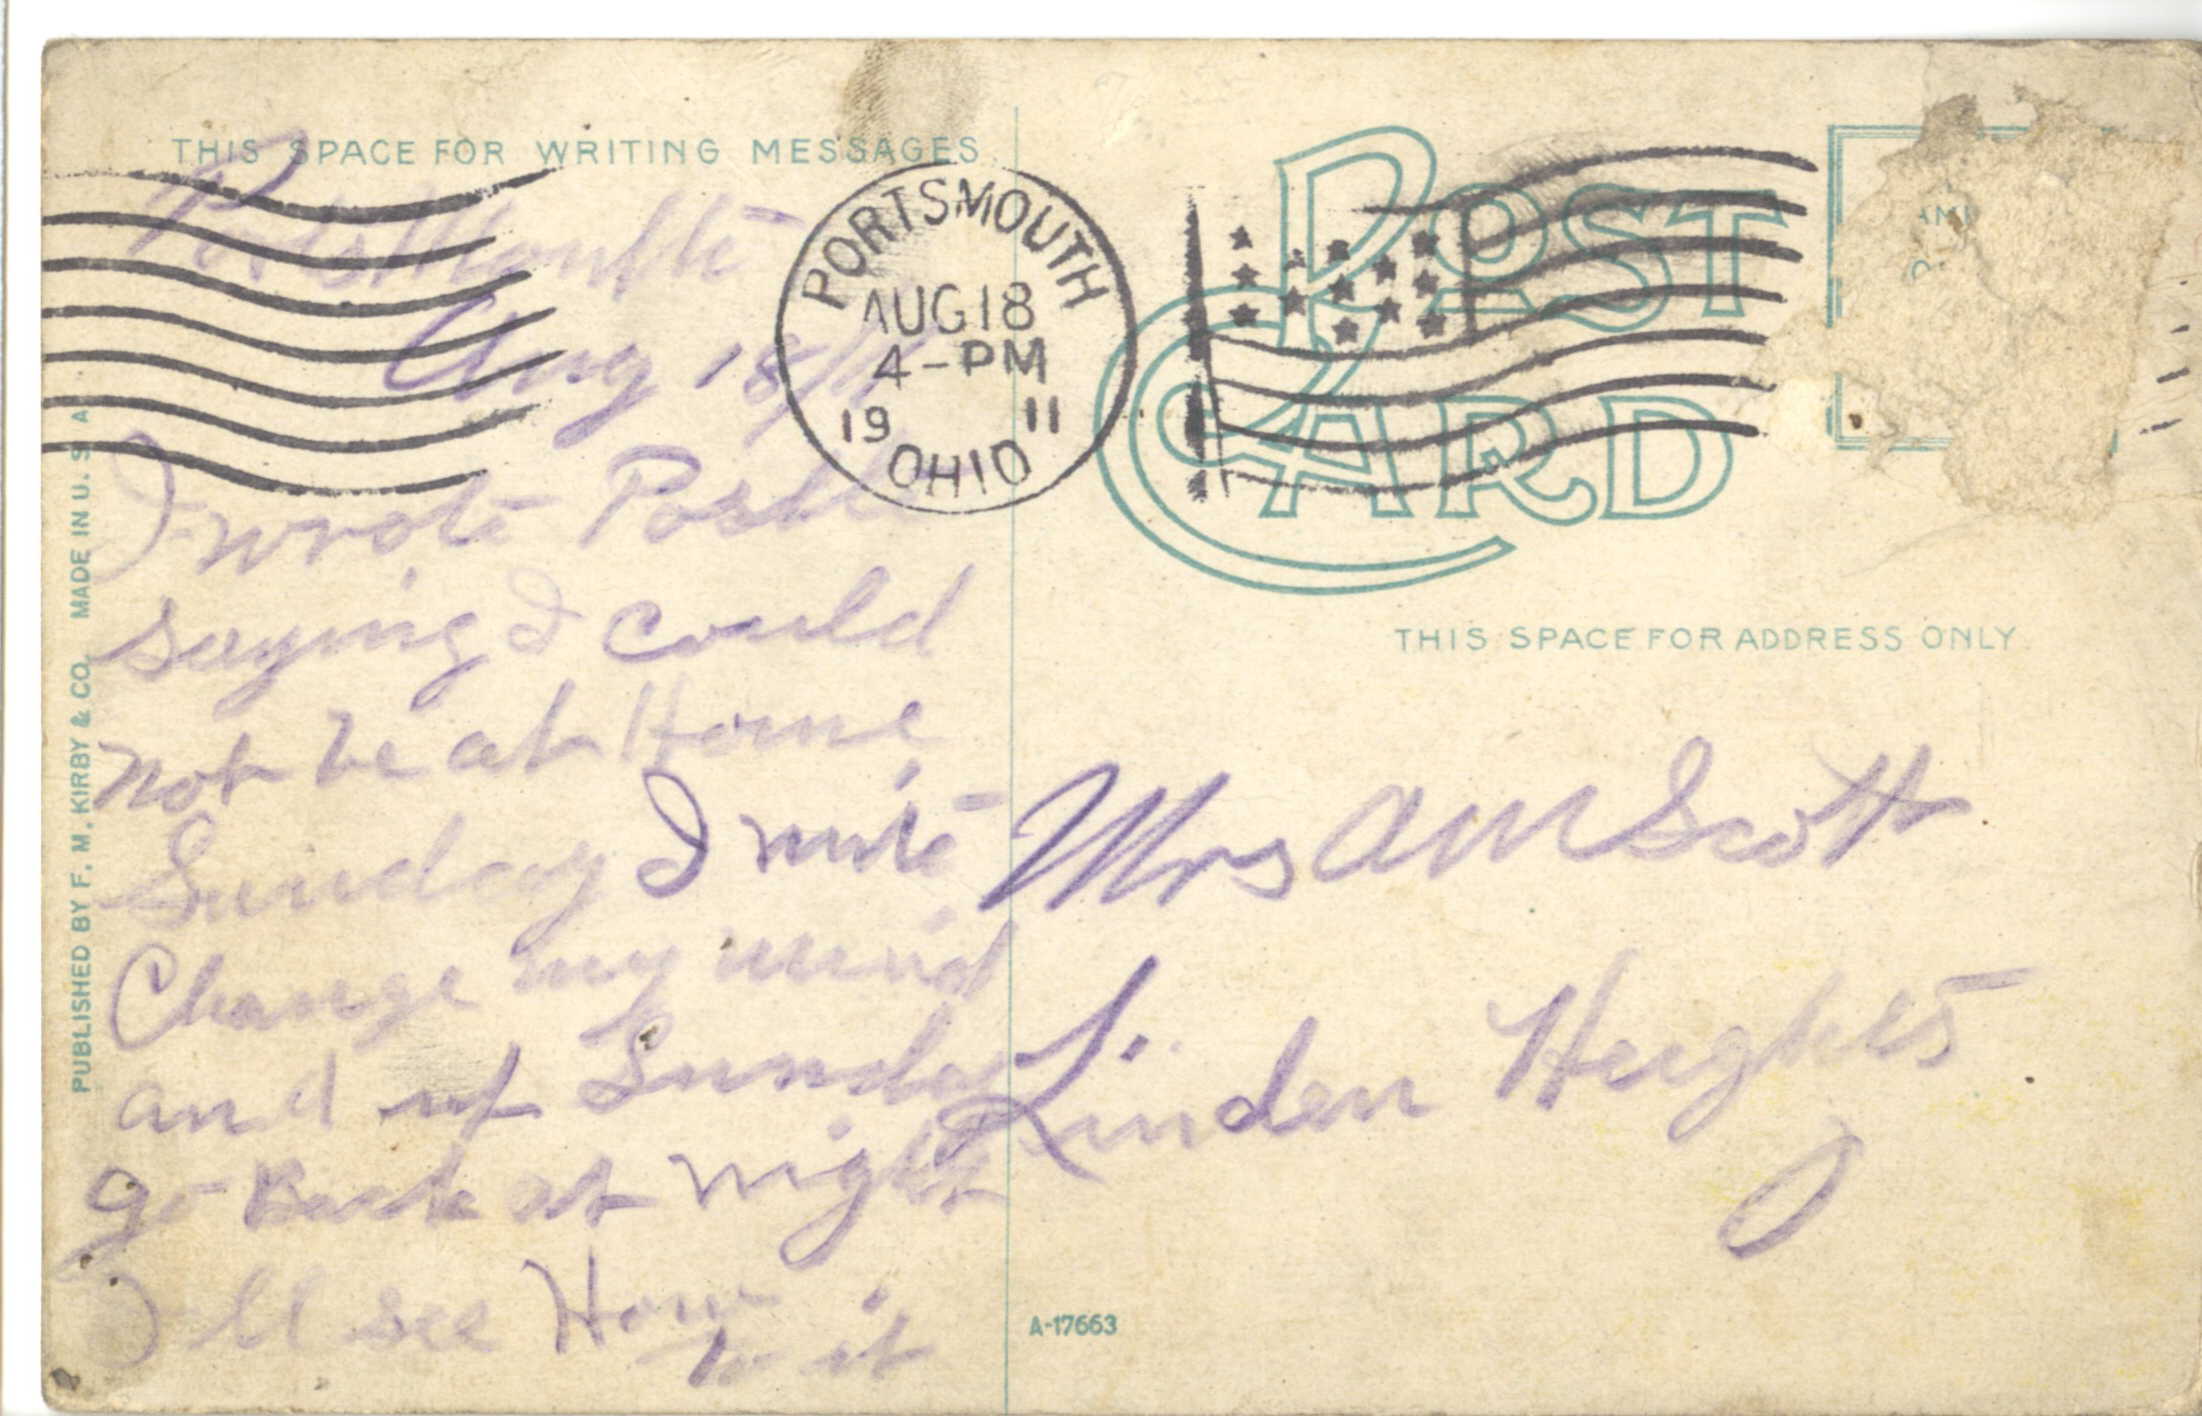 THIS SPACE FOR WRITING MESSAGES
Portsmouth
Aug 18/11
I wrote Postl
saying I could
not be at Home
Sunday I mite
Change my mind
and up Sunday
go Back at night
I ll see How
it
PUBLISHED BY F. M. KIRBY & CO. MADE IN U. S. A.
PORTSMOUTH
AUG 18
4-PM
19 11
OHIO
POST CARD
THIS SPACE FOR ADDRESS ONLY.
Mrs A M Scott
Linden Heights
O
A-17663